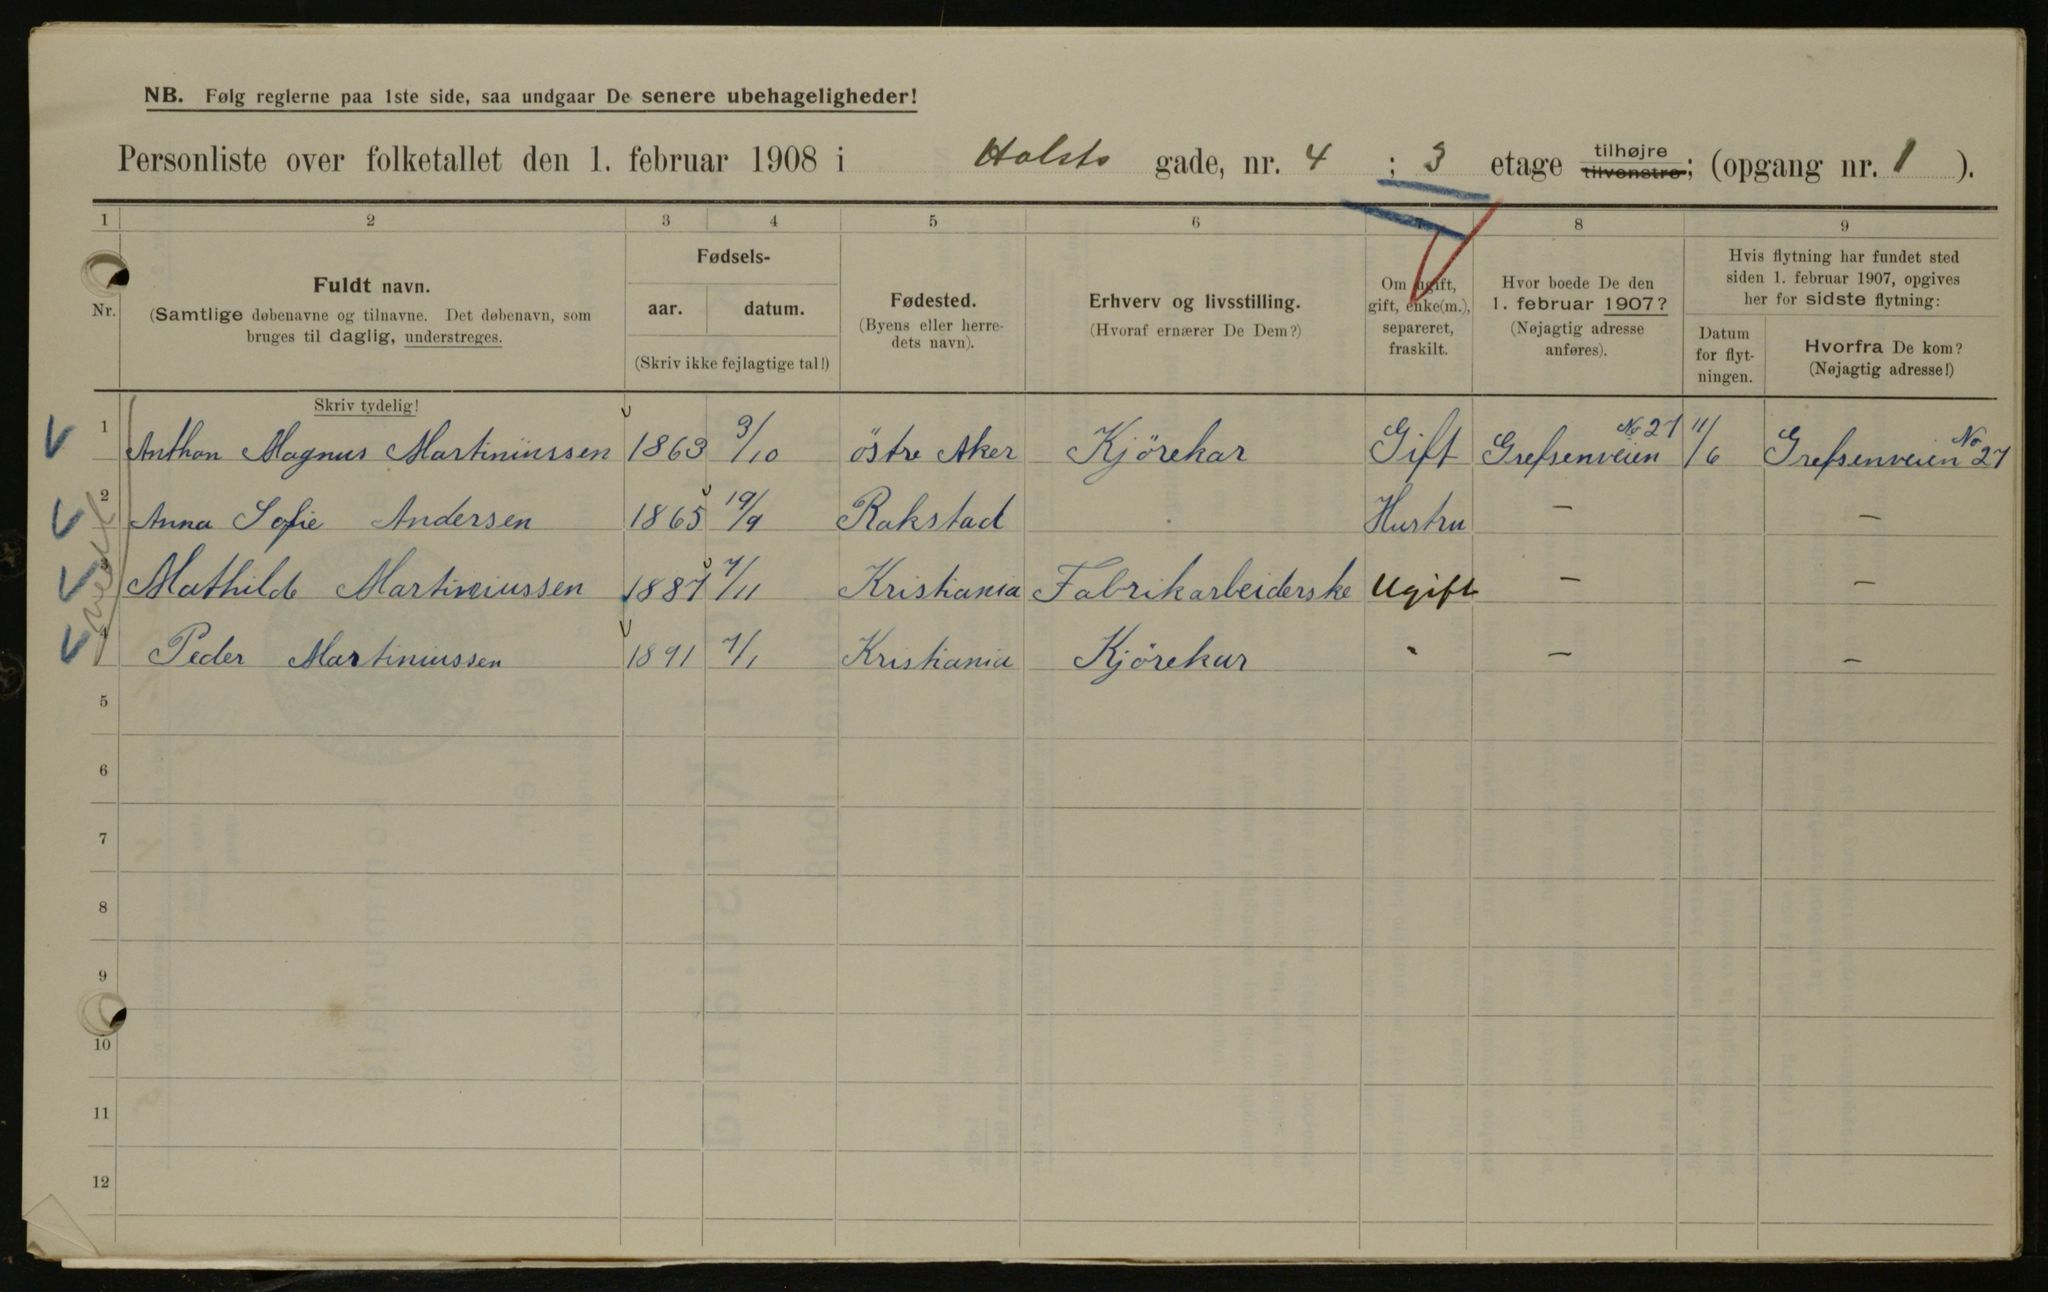 NB. Følg reglerne paa 1ste side, saa undgaar De senere ubehageligheder!
Personliste over folketallet den 1. februar 1908 i Holsts gade, nr. 4 ; 3 etage tilhøjre tilvenstre; (opgang nr. 1 ).
1 2 3 4 5 6 7 8 9
Nr.
Fuldt navn.
(Samtlige døbenavne og tilnavne. Det døbenavn, som
bruges til daglig, understreges.
Fødsels-
aar. datum.
(Skriv ikke fejlagtige tal!)
Fødested.
(Byens eller herre-
dets navn).
Erhverv og livsstilling.
(Hvoraf ernærer De Dem?)
Om ugift,
gift, enke(m.),
separeret,
fraskilt.
Hvor boede De den
1. februar 1907?
(Nøjagtig adresse
anføres).
Hvis flytning har fundet sted
siden 1. februar 1907, opgives
her for sidste flytning:
Datum
for flyt-
ningen.
Hvorfra De kom?
(Nøjagtig adresse!)
Skriv tydelig!
1 Anthon Magnus Martiniussen 1863 3/10 östre Aker Kjörekar Gift Grefsenveien No 27 11/6 Grefsenveien No 27
2 Anna Sofie Andersen 1865 19/9 Rakstad Hustru – –
3 Mathilde Martiniussen 1887 7/11 Kristiania Fabrikarbeiderske Ugift – –
4 Peder Martiniussen 1891 7/1 Kristiania Kjörekar " – –
5
6
7
8
9
10
11
12